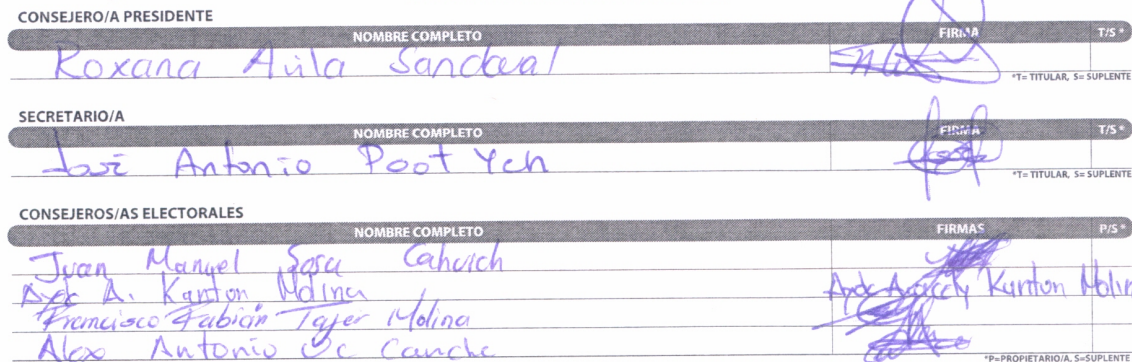 CONSEJERO/A PRESIDENTE
NOMBRE COMPLETO FIRMA T/S *
Roxana Avila Sandoval
*T= TITULAR, S= SUPLENTE
SECRETARIO/A
NOMBRE COMPLETO FIRMA T/S *
José Antonio Poot Ych
*T= TITULAR, S= SUPLENTE
CONSEJEROS/AS ELECTORALES
NOMBRE COMPLETO FIRMAS P/S *
Juan Manuel Sosa Cahuich
A. Kanton Molina Kanton Molin
Francisco Fabián Tajer Molina
Alex Antonio Uc Canche
*P=PROPIETARIO/A, S=SUPLENTE